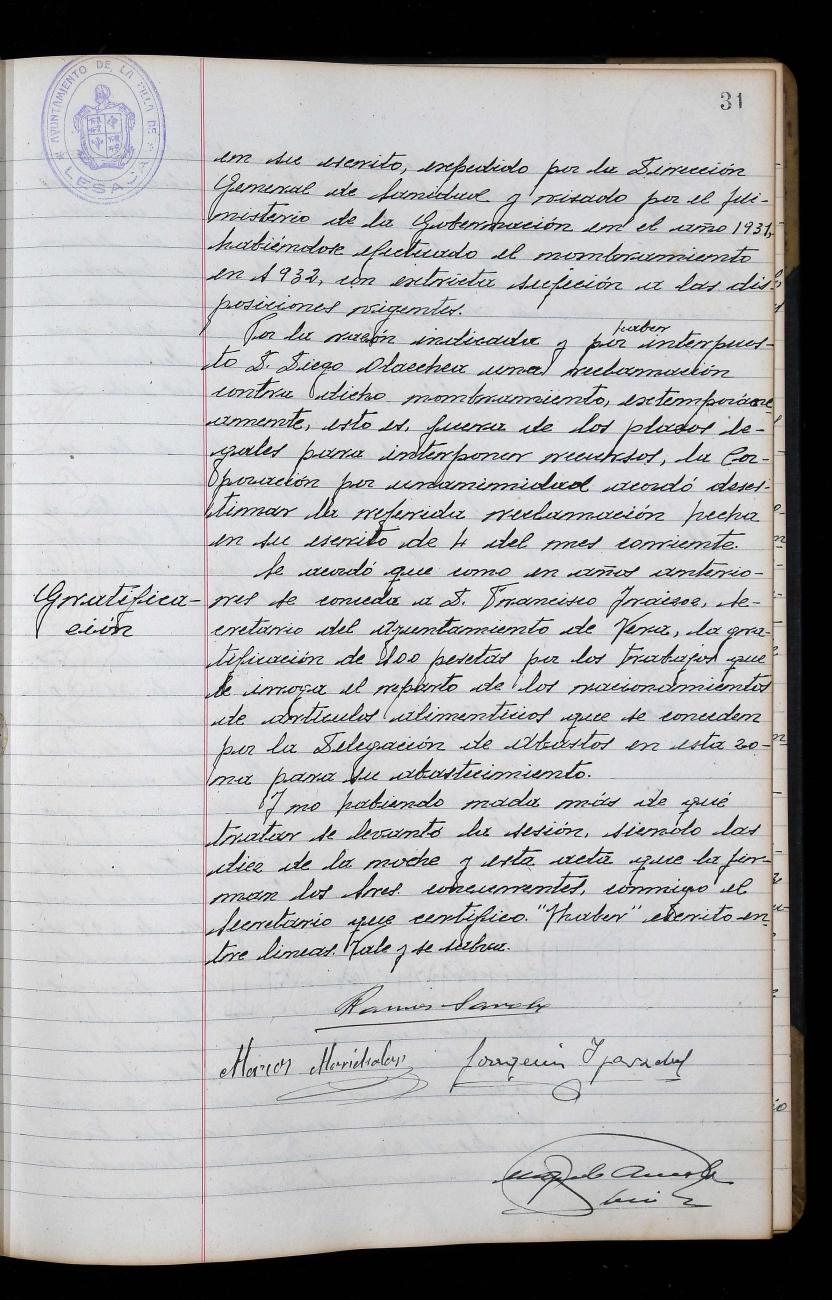 AYUNTAMIENTO DE LA VILLA DE
LESACA
31
en su escrito, expedido por la Dirección
General de Sanidad y visado por el Mi-
nisterio de la Gobernación en el año 1931,
habiéndose efectuado el nombramiento
en 1932, con extricta sujeción a las dis-
posiciones vigentes.
Por la razón indicada y por haber interpues-
to D. Diego Olaechea una reclamación
contra dicho nombramiento, extemporáne
amente, esto es, fuera de los plazos le-
gales para interponer recursos, la Cor-
poración por unanimidad acordó deses-
timar la referida reclamación hecha
en su escrito de 4 del mes corriente.
Gratifica-
ción
Se acordó que como en años anterio-
res se conceda a D. Francisco Iraizoz, Se-
cretario del Ayuntamiento de Vera, la gra-
tificación de 100 pesetas por los trabajos que
le irroga el reparto de los racionamientos
de artículos alimenticios que se conceden
por la Delegación de Abastos en esta zo-
na para su abastecimiento.
Y no habiendo nada más de qué
tratar se levantó la sesión, siendo las
diez de la noche y esta acta que la fir-
man los Sres. concurrentes, conmigo el
Secretario que certifico. "haber" escrito en-
tre lineas. Vale y se salva.
Marcos Marichalar Joaquin